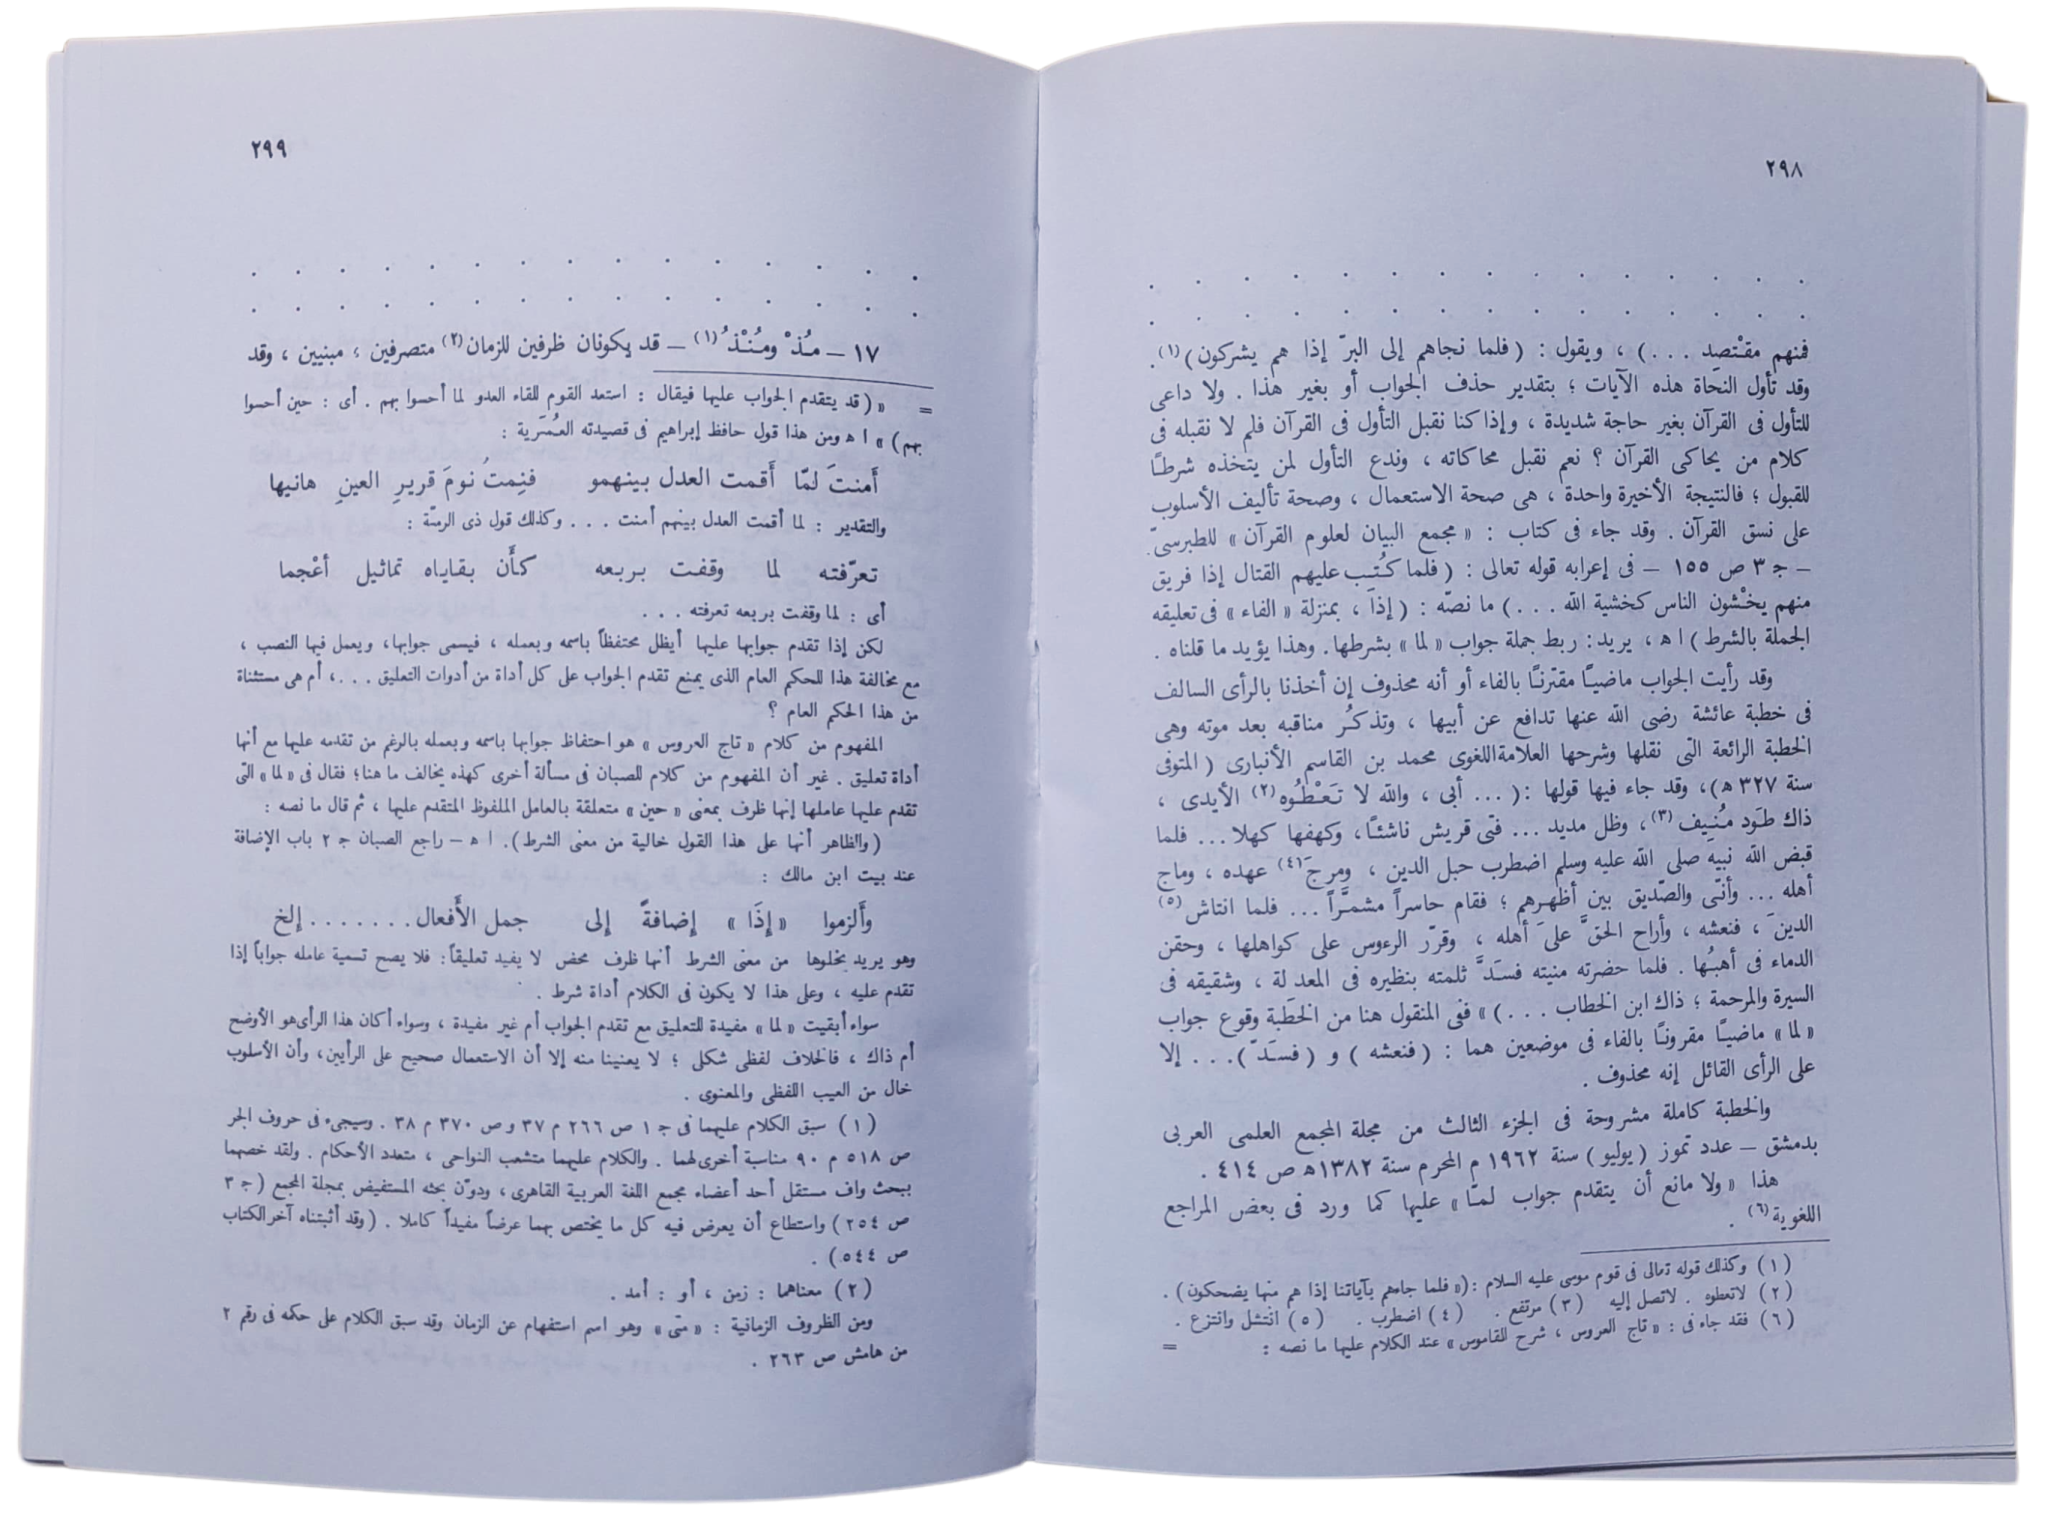 ٢٩٨
. . . . . . . . . . . . . . .
. . . . . . . . . . . . . . .
فمنهم مقْتصِد . . .) ، ويقول : (فلما نجاهم إلى البرّ إذا هم يشركون)(١).
وقد تأول النحاة هذه الآيات ؛ بتقدير حذف الجواب أو بغير هذا . ولا داعى
للتأول فى القرآن بغير حاجة شديدة ، وإذا كنا نقبل التأول فى القرآن فلم لا نقبله فى
كلام من يحاكى القرآن ؟ نعم نقبل محاكاته ، وندع التأول لمن يتخذه شرطًا
للقبول ؛ فالنتيجة الأخيرة واحدة ، هى صحة الاستعمال ، وصحة تأليف الأسلوب
على نسق القرآن . وقد جاء فى كتاب : « مجمع البيان لعلوم القرآن » للطبرسىّ
– ج ٣ ص ١٥٥ – فى إعرابه قوله تعالى : (فلما كُتب عليهم القتال إذا فريق
منهم يخْشون الناس كخشية الله . . .) ما نصّه : (إذا ، بمنزلة « الفاء » فى تعليقه
الجملة بالشرط ) اه ، يريد : ربط جملة جواب « لما » بشرطها . وهذا يؤيد ما قلناه .
وقد رأيت الجواب ماضيًا مقترنًا بالفاء أو أنه محذوف إن أخذنا بالرأى السالف
فى خطبة عائشة رضى الله عنها تدافع عن أبيها ، وتذكُر مناقبه بعد موته وهى
الخطبة الرائعة التى نقلها وشرحها العلامة اللغوى محمد بن القاسم الأنبارى ( المتوفى
سنة ٣٢٧ ه) ، وقد جاء فيها قولها : ( . . . أبى ، والله لا تَعْطُوه(٢) الأيدى ،
ذاك طَود مُنيف(٣) ، وظل مديد . . . فتى قريش ناشئًا ، وكهفها كهلا . . . فلما
قبض الله نبيه صلى الله عليه وسلم اضطرب حبل الدين ، ومرجَ(٤) عهده ، وماج
أهله . . . وأنّى والصّديق بين أظهرهم ؛ فقام حاسراً مشمَّراً . . . فلما انتاش(٥)
الدينَ ، فنعشه ، وأراح الحقَّ علىَ أهله ، وقرّر الرءوس على كواهلها ، وحقن
الدماء فى أهبُها . فلما حضرته منيته فسَدَّ ثلمته بنظيره فى المعدلة ، وشقيقه فى
السيرة والمرحمة ؛ ذاك ابن الخطاب . . . ) » ففى المنقول هنا من الخطَبة وقوع جواب
« لما » ماضيًا مقرونًا بالفاء فى موضعين هما : ( فنعشه ) و ( فسَدّ ) . . . إلا
على الرأى القائل إنه محذوف .
والخطبة كاملة مشروحة فى الجزء الثالث من مجلة المجمع العلمى العربى
بدمشق – عدد تموز ( يوليو ) سنة ١٩٦٢ م المحرم سنة ١٣٨٢ه ص ٤١٤ .
هذا « ولا مانع أن يتقدم جواب لمّا » عليها كما ورد فى بعض المراجع
اللغوية(٦) .
(١) وكذلك قوله تعالى فى قوم موسى عليه السلام : (« فلما جاءهم بآياتنا إذا هم منها يضحكون) .
(٢) لاتعطوه . لاتصل إليه (٣) مرتفع . (٤) اضطرب . (٥) انتشل وانتزع .
(٦) فقد جاء فى : « تاج العروس ، شرح للقاموس » عند الكلام عليها ما نصه : =
٢٩٩
. . . . . . . . . . . . . . .
. . . . . . . . . . . . . . .
١٧ – مُذْ ومُنْذُ(١) – قد يكونان ظرفين للزمان(٢) متصرفين ، مبنيين ، وقد
= « (قد يتقدم الجواب عليها فيقال : استعد القوم للقاء العدو لما أحسوا بهم . أى : حين أحسوا
بهم ) » اه ومن هذا قول حافظ إبراهيم فى قصيدته العُمَرية :
أَمنتَ لمّا أَقمت العدل بينهمو فنِمتُ نومَ قريرِ العينِ هانيها
والتقدير : لما أقمت العدل بينهم أمنت . . . وكذلك قول ذى الرمّة :
تعرّفته لما وقفت بربعه كأَن بقاياه تماثيل أعْجما
أى : لما وقفت بربعه تعرفته . . .
لكن إذا تقدم جوابها عليها أيظل محتفظاً باسمه وبعمله ، فيسمى جوابها ، ويعمل فيها النصب ،
مع مخالفة هذا للحكم العام الذى يمنع تقدم الجواب على كل أداة من أدوات التعليق . . . ، أم هى مستثناة
من هذا الحكم العام ؟
المفهوم من كلام « تاج العروس » هو احتفاظ جوابها باسمه وبعمله بالرغم من تقدمه عليها مع أنها
أداة تعليق . غير أن المفهوم من كلام للصبان فى مسألة أخرى كهذه يخالف ما هنا ؛ فقال فى « لما » التى
تقدم عليها عاملها إنها ظرف بمعنى « حين » متعلقة بالعامل الملفوظ المتقدم عليها ، ثم قال ما نصه :
(والظاهر أنها على هذا القول خالية من معنى الشرط) . اه – راجع الصبان ج ٢ باب الإضافة
عند بيت ابن مالك :
وأَلزموا « إِذَا » إِضافةً إِلى جمل الأَفعال . . . . . . . إلخ
وهو يريد بخلوها من معنى الشرط أنها ظرف محض لا يفيد تعليقاً : فلا يصح تسمية عامله جواباً إذا
تقدم عليه ، وعلى هذا لا يكون فى الكلام أداة شرط .
سواء أبقيت « لما » مفيدة للتعليق مع تقدم الجواب أم غير مفيدة ، وسواء أكان هذا الرأى هو الأوضح
أم ذاك ، فالخلاف لفظى شكلى ؛ لا يعنينا منه إلا أن الاستعمال صحيح على الرأيين ، وأن الأسلوب
خال من العيب اللفظى والمعنوى .
(١) سبق الكلام عليهما فى ج ١ ص ٢٦٦ م ٣٧ و ص ٣٧٠ م ٣٨ . وسيجىء فى حروف الجر
ص ٥١٨ م ٩٠ مناسبة أخرى لهما . والكلام عليهما متشعب النواحى ، متعدد الأحكام . ولقد خصهما
ببحث واف مستقل أحد أعضاء مجمع اللغة العربية القاهرى ، ودوّن بحثه المستفيض بمجلة المجمع (ج ٣
ص ٢٥٤) واستطاع أن يعرض فيه كل ما يختص بهما عرضاً مفيداً كاملا . (وقد أثبتناه آخر الكتاب
ص ٥٤٤) .
(٢) معناهما : زمن ، أو : أمد .
ومن الظروف الزمانية : « متى » وهو اسم استفهام عن الزمان وقد سبق الكلام على حكمه فى رقم ٢
من هامش ص ٢٦٣ .